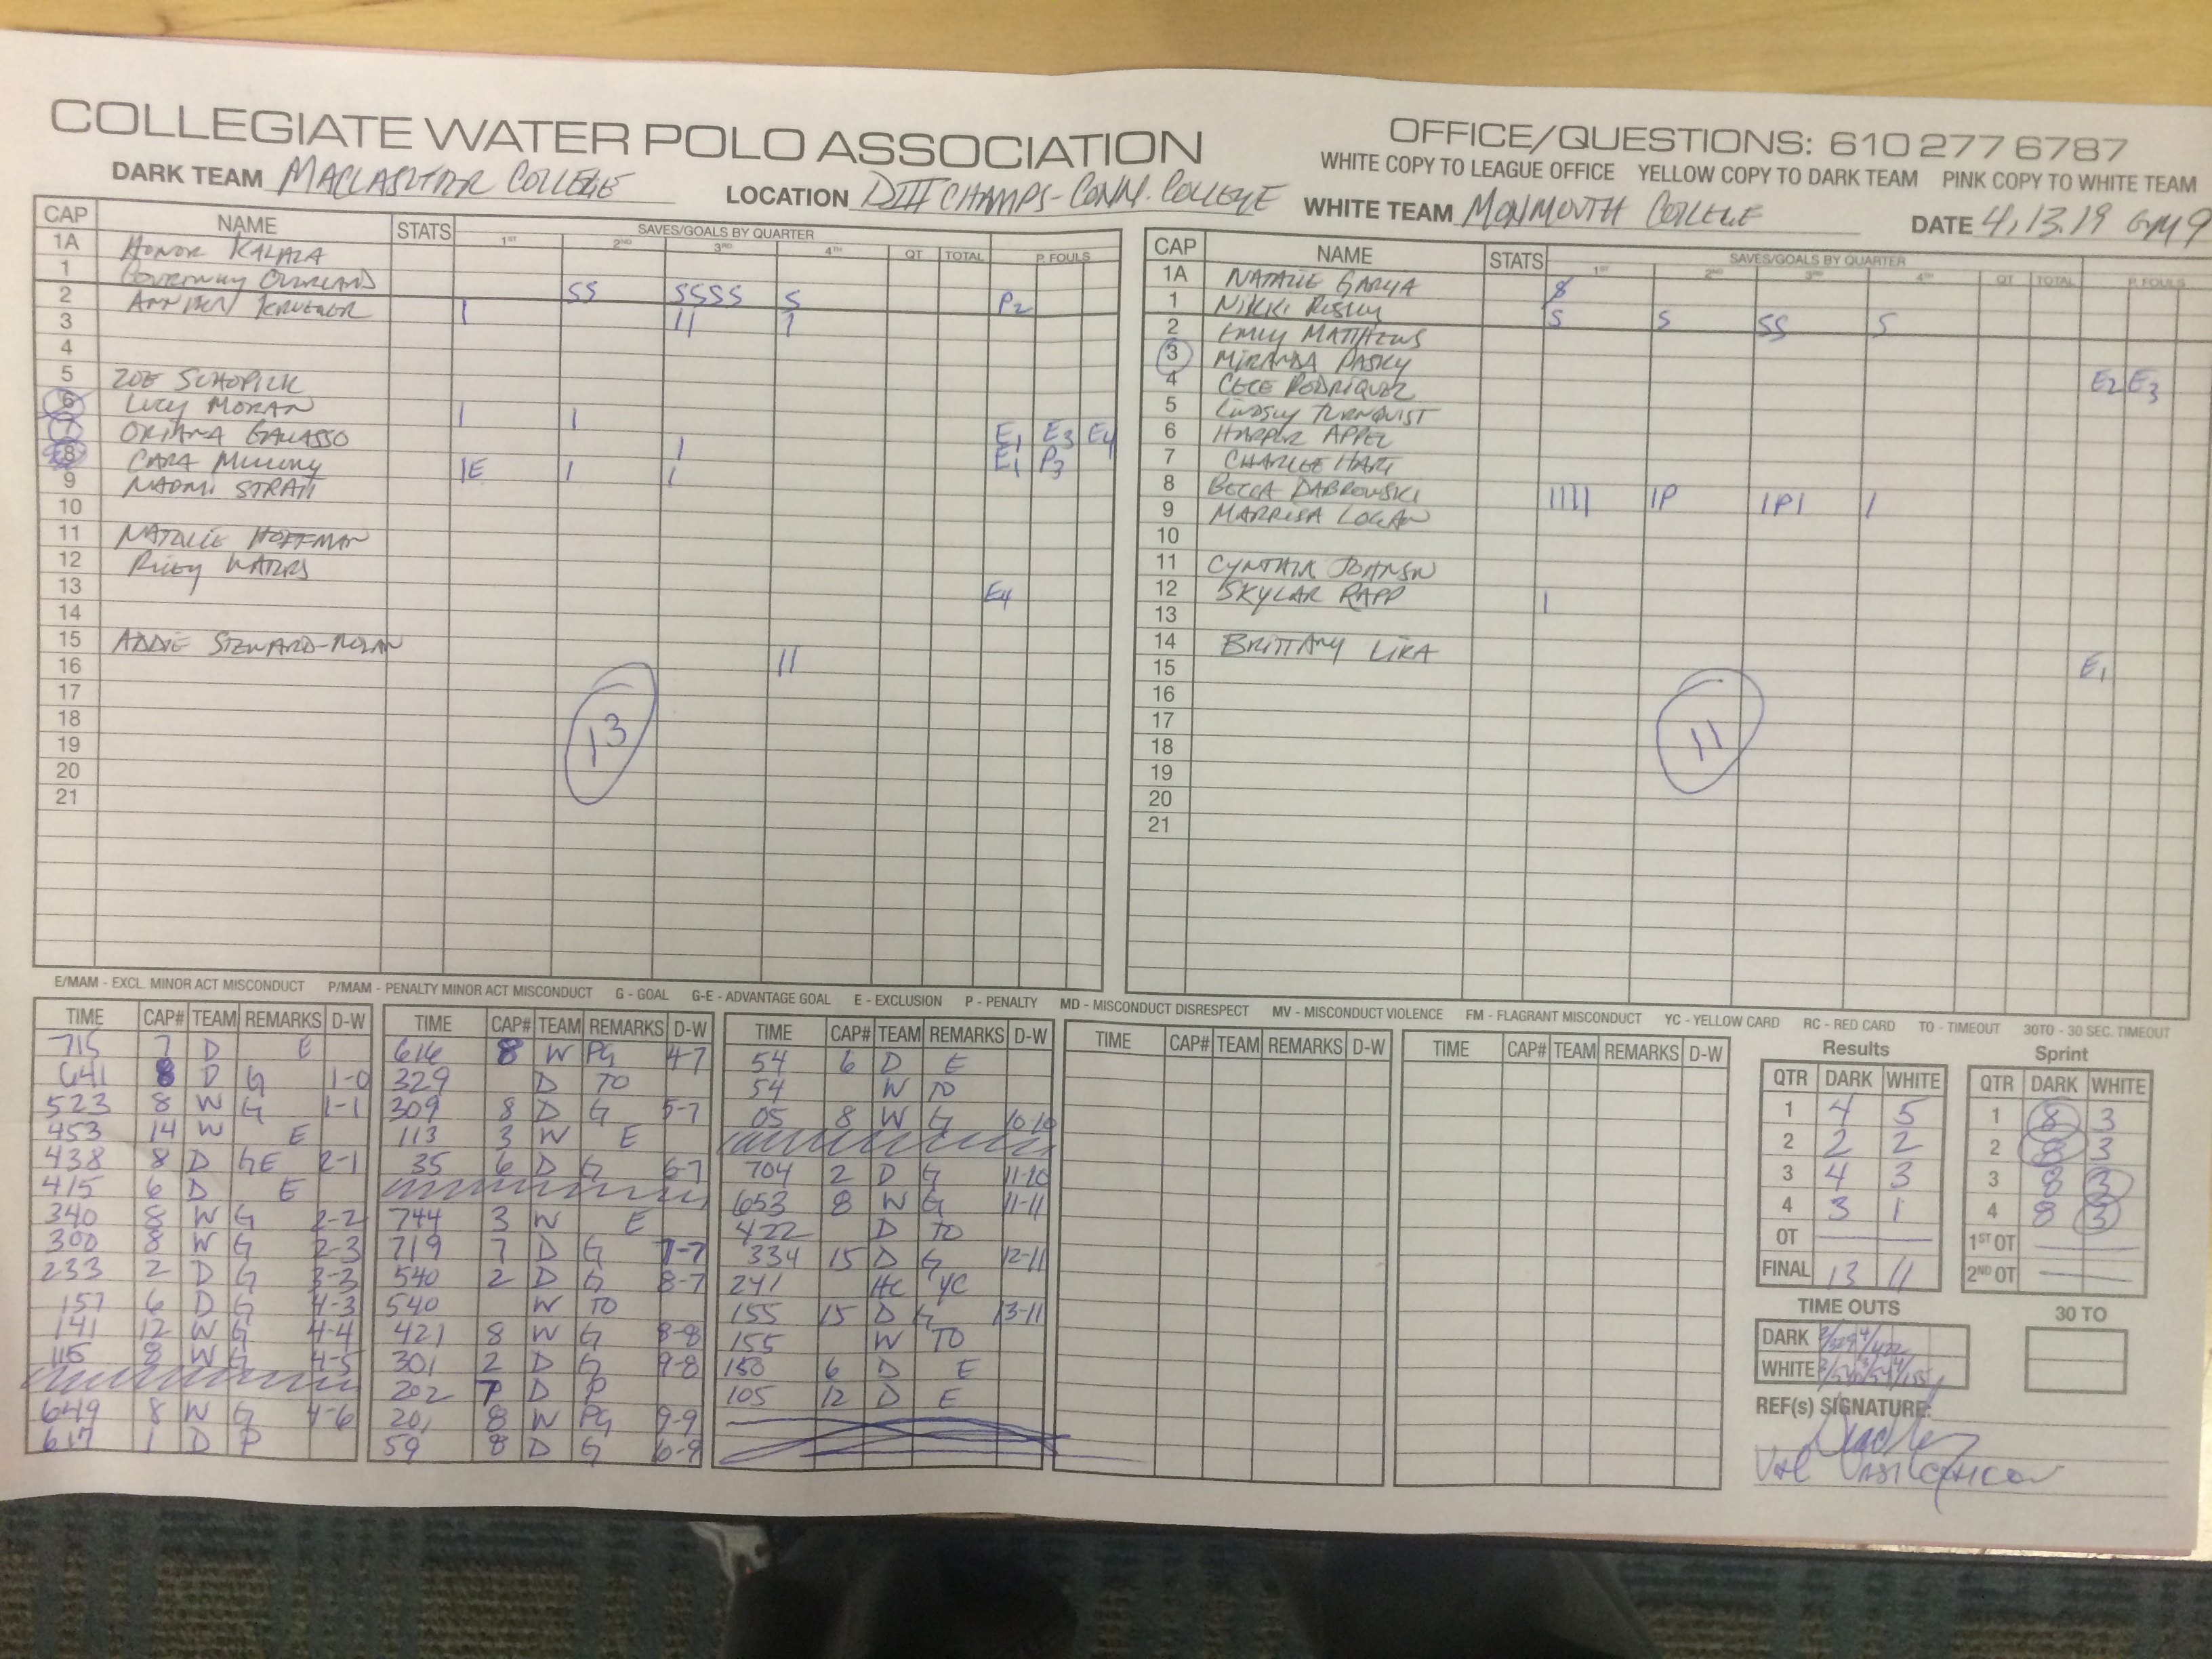 COLLEGIATE WATER POLO ASSOCIATION
OFFICE/QUESTIONS: 610 277 6787
WHITE COPY TO LEAGUE OFFICE YELLOW COPY TO DARK TEAM PINK COPY TO WHITE TEAM
DARK TEAM MACLASLTER COLLEGE LOCATION DIII CHAMPS-CONN. COLLEGE WHITE TEAM MONMOUTH COLLEGE DATE 4,13.19 GM 9
CAP NAME STATS SAVES/GOALS BY QUARTER P. FOULS
1ST 2ND 3RD 4TH OT TOTAL
1A HONOR KALALA
1 OVERLAND SS SSSS S P2
2 KRUEGER 1 11 1
3
4
5 ZOE SCHOPICK
6 LUCY MORAN 1 1 E1 E3 E4
7 ORIANA GALASSO 1 E1 P3
8 CARA 1E 1 1
9 NAOMI STRAIT
10
11 NATALIE HOFFMAN
12 RILEY WATERS E4
13
14
15 ADDIE STEWARD-NOLAN 11
16
17
18
19
20
21
13
CAP NAME STATS SAVES/GOALS BY QUARTER P. FOULS
1ST 2ND 3RD 4TH OT TOTAL
1A NATALIE GARCIA
1 NIKKI RISLEY S S SS S
2 EMILY MATTHEWS
3 MIRANDA PASKY E2 E3
4 CECE RODRIQUEZ
5 LINDSEY TURNQUIST
6 HARPER APPEL
7 CHARLEE HART
8 BECCA DABROWSKI 1111 1P 1P1 1
9 MARRISA LOGAN
10
11 CYNTHIA JOHNSN
12 SKYLAR RAPP 1
13
14 BRITTANY LIRA E1
15
16
17
18
19
20
21
11
E/MAM - EXCL. MINOR ACT MISCONDUCT P/MAM - PENALTY MINOR ACT MISCONDUCT G - GOAL G-E - ADVANTAGE GOAL E - EXCLUSION P - PENALTY MD - MISCONDUCT DISRESPECT MV - MISCONDUCT VIOLENCE FM - FLAGRANT MISCONDUCT YC - YELLOW CARD RC - RED CARD TO - TIMEOUT 30TO - 30 SEC. TIMEOUT
TIME CAP# TEAM REMARKS D-W
715 7 D E
641 8 D G 1-0
523 8 W G 1-1
453 14 W E
438 8 D GE 2-1
415 6 D E
340 8 W G 2-2
300 8 W G 2-3
233 2 D G 3-3
157 6 D G 4-3
141 12 W G 4-4
115 8 W G 4-5
649 8 W G 4-6
617 1 D P
TIME CAP# TEAM REMARKS D-W
616 8 W PG 4-7
329 D TO
309 8 D G 5-7
113 3 W E
35 6 D G 6-7
744 3 W E
719 7 D G 7-7
540 2 D G 8-7
540 W TO
421 8 W G 8-8
301 2 D G 9-8
202 7 D P
201 8 W PG 9-9
59 8 D G 10-9
TIME CAP# TEAM REMARKS D-W
54 6 D E
54 W TO
05 8 W G 10-10
704 2 D G 11-10
653 8 W G 11-11
422 D TO
334 15 D G 12-11
241 HC YC
155 15 D G 13-11
155 W TO
150 6 D E
105 12 D E
TIME CAP# TEAM REMARKS D-W
TIME CAP# TEAM REMARKS D-W
Results
QTR DARK WHITE
1 4 5
2 2 2
3 4 3
4 3 1
OT
FINAL 13 11
Sprint
QTR DARK WHITE
1 8 3
2 8 3
3 8 3
4 8 3
1ST OT
2ND OT
TIME OUTS
DARK 2/329 4/422
WHITE 3/540 3/54 4/155
30 TO
REF(s) SIGNATURE: